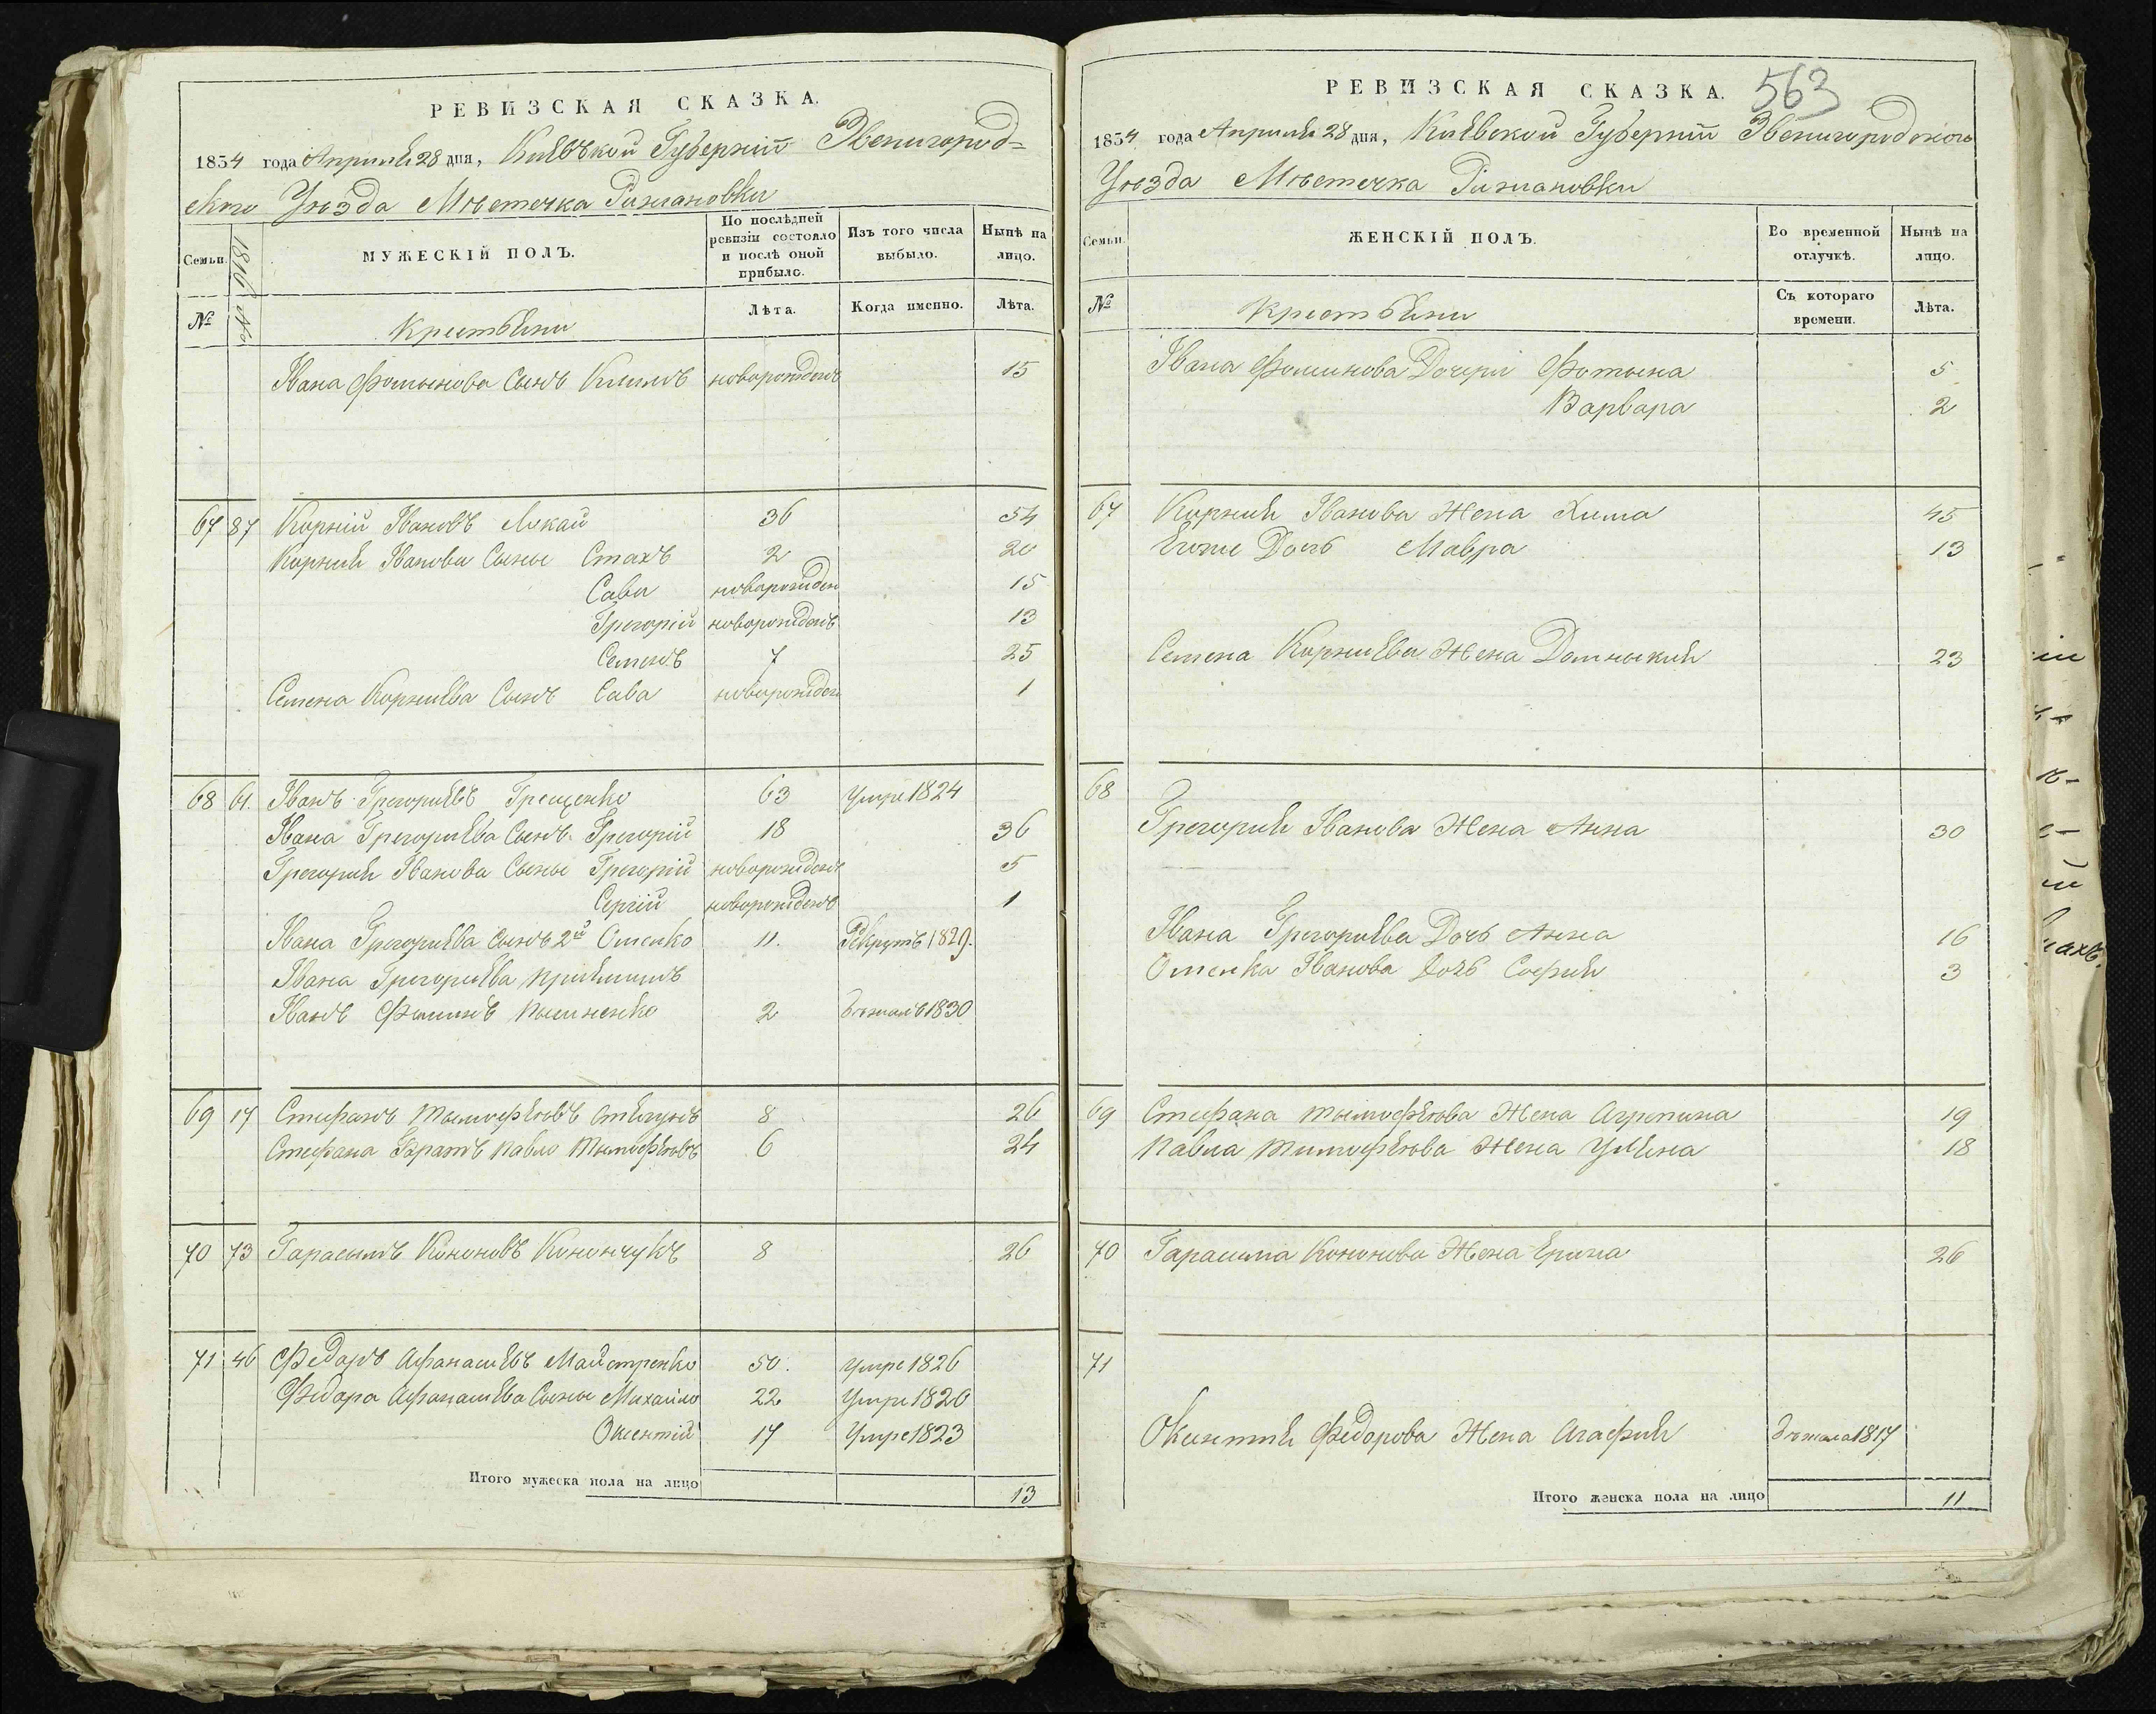 РЕВИЗСКАЯ СКАЗКА.
1834 года Априля 28 дня, Киевской Губернии Звенигород-
ского Уезда Местечка Рижановки
Семьи.
1816 №
МУЖЕСКІЙ ПОЛЪ.
По послѣдней ревизіи состояло и послѣ оной прибыло.
Изъ того числа выбыло.
Нынѣ на лицо.
№
Крестьяни
Лѣта.
Когда именно.
Лѣта.
Івана Фоминова Сынъ Климъ новорожденъ 15
67 87 Корній Івановъ Лукай 36 54
Корнія Іванова Сыны Стахъ 2 20
Сава новорожден 15
Грегорій новорожденъ 13
Семенъ 7 25
Семена Корніева Сынъ Сава новорожден 1
68 61. Іванъ Грегоріевъ Грещенко 63 Умре 1824
Івана Грегоріева Сынъ Грегорій 18 36
Грегорія Іванова Сыны Грегорій новорожденъ 5
Сергій новорожденъ 1
Івана Грегоріева Сынъ 2й Омелко 11. Рекрутъ 1829.
Івана Грегоріева приймишъ
Іванъ 2 бежалъ 1830
69 17 Стефанъ Тымофеювъ 8 26
Стефана Братъ Павло Тымофеювъ 6 24
70 73 Гарасымъ Кононовъ Конончукъ 8 26
71 46 Федоръ Афанасиевъ Майстренко 50. умре 1826
Федора Афанасиева Сыны Михайло 22 Умре 1820
Оксентій 17 Умре 1823
Итого мужеска пола на лицо 13
563
РЕВИЗСКАЯ СКАЗКА.
1834 года Априля 28 дня, Киевской Губернии Звенигородского
Уезда Местечка Рижановки
Семьи.
ЖЕНСКІЙ ПОЛЪ.
Во временной отлучкѣ.
Нынѣ на лицо.
№
Крестьяни
Съ котораго времени.
Лѣта.
Івана Фоминова Дочери Фотына 5
Варвара 2
67 Корнія Іванова Жена Хима 45
Егоже Дочь Мавра 13
Семена Корніева Жена Домныкия 23
68
Грегорія Іванова Жена Анна 30
Івана Грегоріева Дочь Анна 16
Омелка Іванова Дочь София 3
69 Стефана Тымофеюва Жена Агрепина 19
Павла Тимофеюва Жена Улияна 18
70 Гарасима Кононова Жена Ерина 26
71
Оксинтия Федорова Жена Агафия бежала 1817
Итого женска пола на лицо 11